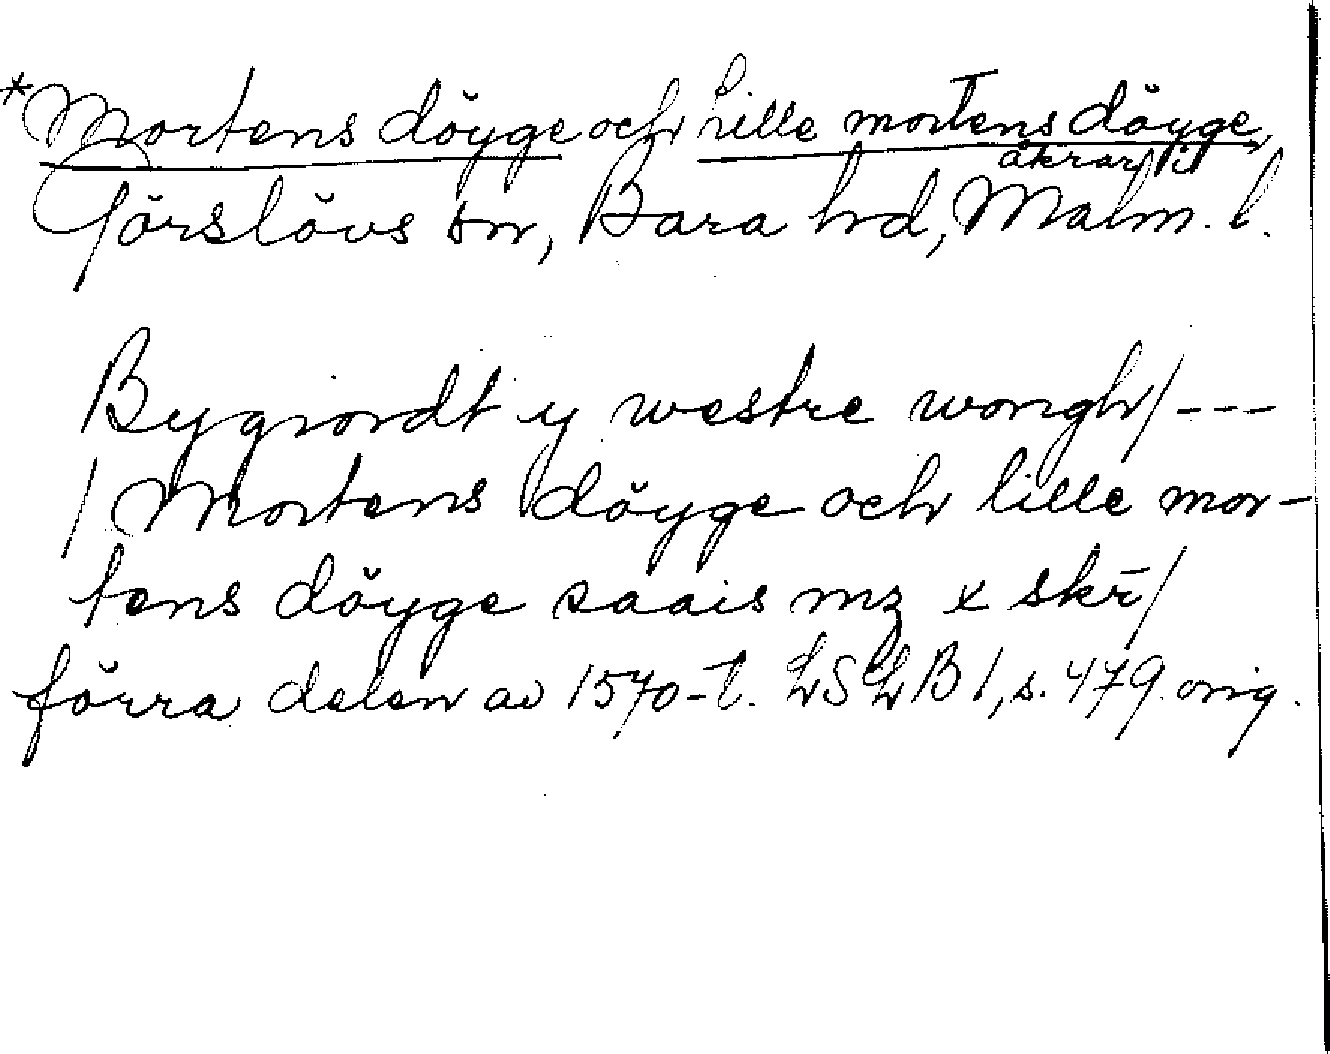 *Mortens döyge och Lille mortens döyge,
åkrar i
Görslövs sn, Bara hd, Malm. l.
Bygnordt y westre wongh/ ---
/ Mortens döyge och lille mor-
tens döyge saais mz x skr̄/
förra delen av 1570-t. LSLB 1, s. 479. orig.